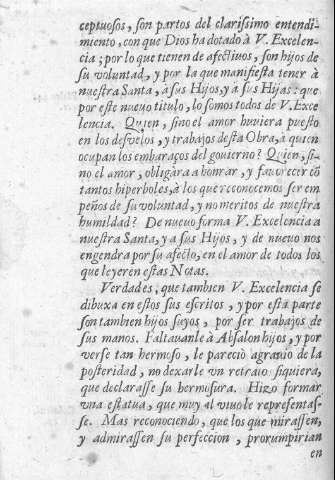 ceptuosos, son partos del clarissimo entendi-
miento, con que Dios ha dotado à V. Excelen-
cia; por lo que tienen de afectivos, son hijos de
su voluntad, y por la que manifiesta tener à
nuestra Santa, à sus Hijos, y à sus Hijas: que
por este nuevo titulo, lo somos todos de V. Exce
lencia. Quien, sino el amor huviera puesto
en los desvelos, y trabajos desta Obra, à quien
ocupan los embaraços del govierno? Quien, si-
no el amor, obligàra a honrar, y favorecer cõ
tantos hiperboles, à los que reconocemos ser em
peños de su voluntad, y no meritos de nuestra
humildad? De nuevo forma V. Excelencia a
nuestra Santa, y a sus Hijos, y de nuevo nos
engendra por su afecto, en el amor de todos los
que leyerèn estas Notas.
Verdades; que tambien V. Excelencia se
dibuxa en estos sus escritos, y por esta parte
son tambien hijos suyos, por ser trabajos de
sus manos. Faltavanle à Absalon hijos, y por
verse tan hermoso, le pareciò agravio de la
posteridad, no dexarle vn retrato siquiera,
que declarasse su hermosura. Hizo formar
vna estatua, que muy al vivo le representas-
se. Mas reconociendo, que los que mirassen,
y admirassen su perfeccion, prorumpirian
en